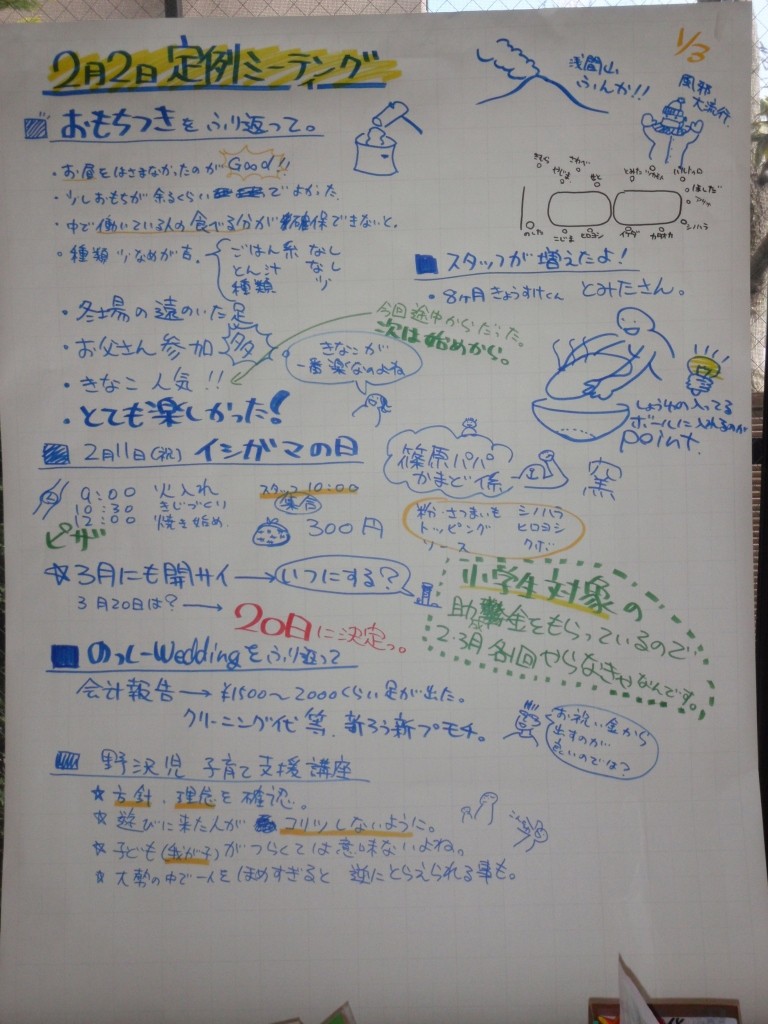 1/3
2月2日 定例ミーティング
浅間山
ふんか!!
風邪
大流行
おもちつきをふり返って。
・お昼をはさまなかったのがGood!!
・少しおもちが余るくらい でよかった.
・中で働いている人の食べる分が 確保できないと。
・種類 少なめが吉.
ごはん系 なし
とん汁 なし
種類 少
・冬場の遠のいた足
・お父さん参加 多
・きなこ人気!!
・とても楽しかった!
今回途中からだった。
次は始めから。
きなこが
一番楽なのよね
きてら
やじま
さわで
せと
とみた
ほしだ
シノハラ
カタオカ
イケダ
ヒロヨシ
こじま
のした
スタッフが増えたよ!
・8ヶ月きょうすけくん とみたさん。
しょうゆの入ってる
ボールに入れるのが
point.
2月11日(祝) イシガマの日
9:00 火入れ
10:30 きじづくり
12:00 焼き始め
ピザ
スタッフ10:00
集合
300円
篠原パパ
かまど係
窯
粉・さつまいも シノハラ
トッピング ヒロヨシ
ソース クボ
☆3月にも開サイ→いつにする?
3月20日は?→20日に決定っ。
小学生対象の
助成金をもらっているので
2.3月各1回やらなきゃなんです。
のっしーWeddingをふり返って
会計報告→¥1500〜2000くらい足が出た。
クリーニング代等. 新ろう新プモチ。
お祝い金から
出すのが
良いのでは?
野沢児 子育て支援講座
☆方針、理念を確認。
☆遊びに来た人が コリツしないように。
☆子ども(我が子)がつらくては意味ないよね。
☆大勢の中で一人をほめすぎると 逆にとらえられる事も。